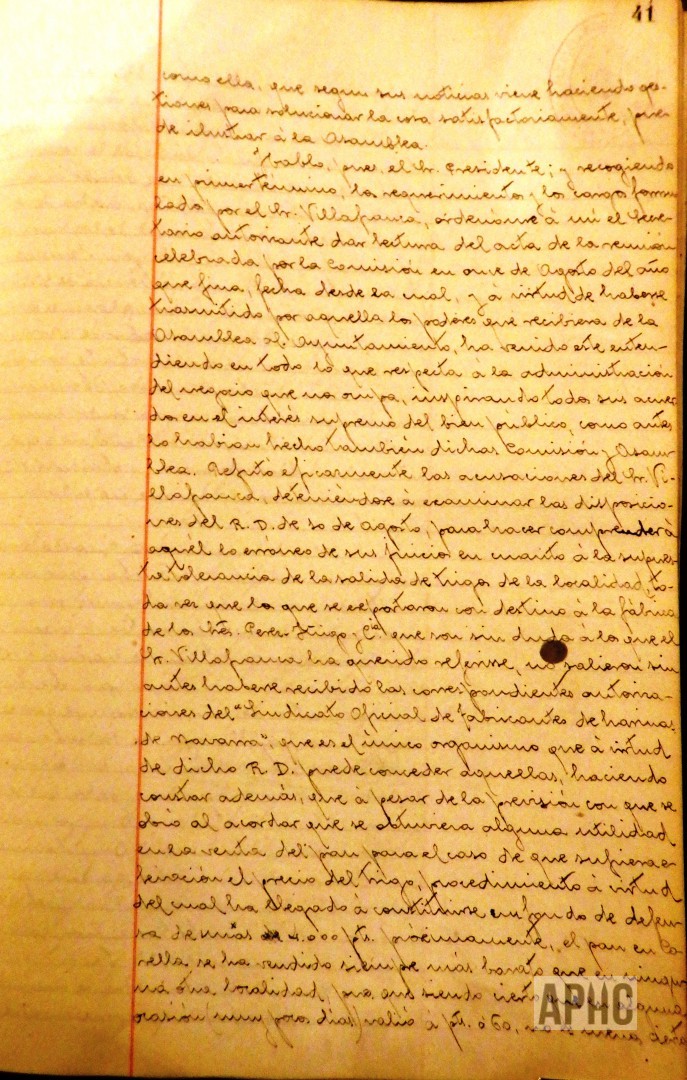 41
como ella, que segun sus noticias viene haciendo ges-
tiones para solucionar la cosa satisfactoriamente, pue-
de ilustrar à la Asamblea.
Habló, pues, el Sr. Presidente; y recogiendo
en primer término, los requerimientos y los cargos formu-
lados por el Sr. Villafranca, ordenóme à mi el Secre-
tario autorizante dar lectura del acta de la reunión
celebrada por la Comisión en once de Agosto del año
que fina, fecha desde la cual, y à virtud de haberse
trasmitido por aquella los poderes que recibiera de la
Asamblea al Ayuntamiento, ha venido este enten-
diendo en todo lo que respecta à la administración
del negocio que nos ocupa, inspirando todos sus acuer-
dos en el interés supremo del bien público, como antes
lo habian hecho tambièn dichas Comisión y Asam-
blea. Refutó eficazmente las acusaciones del Sr. Vi-
llafranca, deteniéndose à examinar las disposicio-
nes del R. D. de 10 de Agosto, para hacer comprender à
aquél lo erróneo de sus juicios en cuanto à la supues-
ta tolerancia de la salida de trigos de la localidad, to-
da vez que los que se exportaron con destino à la fàbrica
de los Sres. Perez Iñigo y Cia que son sin duda à los que el
Sr. Villafranca ha querido referirse, no salieron sin
antes haberse recibido las correspondientes autoriza-
ciones del "Sindicato Oficial de Fabricantes de harinas
de Navarra", que es el único organismo que à virtud
de dicho R. D. puede conceder aquellas, haciendo
constar además, que à pesar de la previsión con que se
obró al acordar que se obtuviera alguna utilidad
en la venta del pan para el caso de que sufriera e-
levación el precio del trigo, procedimiento à virtud
del cual ha llegado à constituirse un fondo de defen-
sa de màs de 4.000 pts. próximamente, el pan en Co-
rella se ha vendido siempre más barato que en ningu-
na otra localidad, pues aun siendo cierto que en alguna
ocasión muy pocos dias valió à pts. 0'60, no es menos cierto
APHC